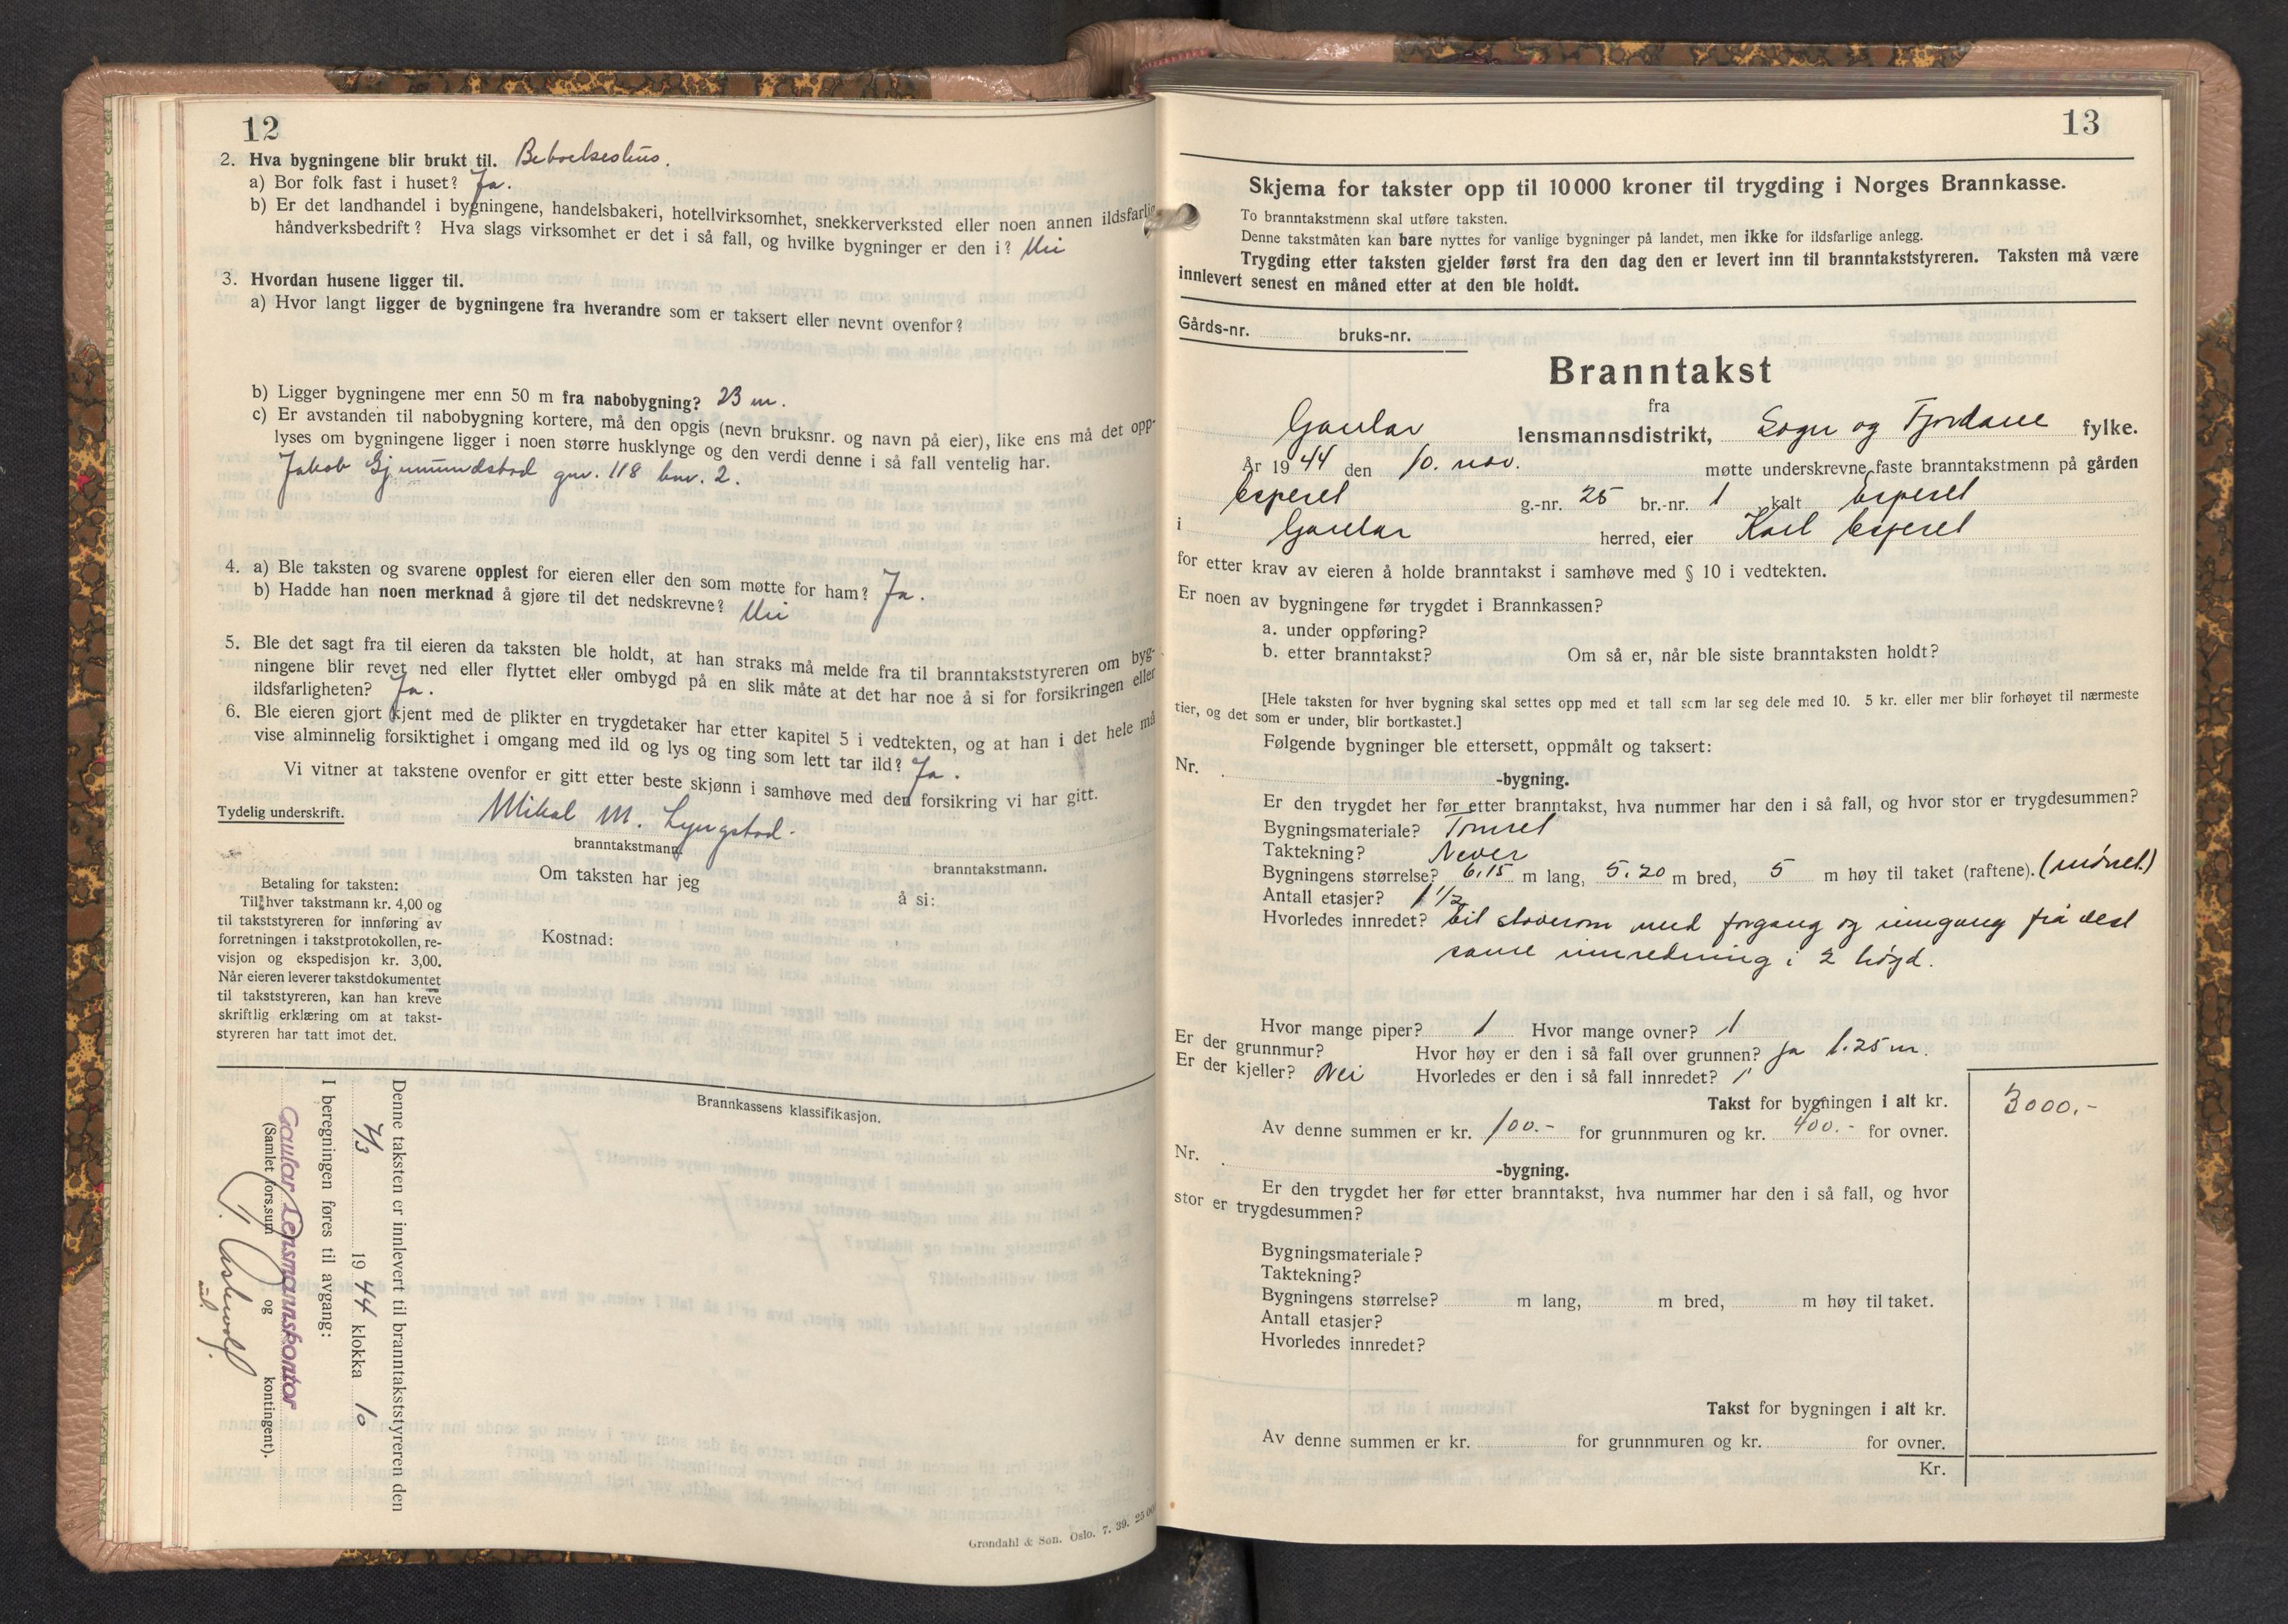 12
2. Hva bygningene blir brukt til. Beboelseshus.
a) Bor folk fast i huset? Ja.
b) Er det landhandel i bygningene, handelsbakeri, hotellvirksomhet, snekkerverksted eller noen annen ildsfarlig
håndverksbedrift? Hva slags virksomhet er det i så fall, og hvilke bygninger er den i? Nei
3. Hvordan husene ligger til.
a) Hvor langt ligger de bygningene fra hverandre som er taksert eller nevnt ovenfor?
b) Ligger bygningene mer enn 50 m fra nabobygning? 23 m.
c) Er avstanden til nabobygning kortere, må den opgis (nevn bruksnr. og navn på eier), like ens må det opp-
lyses om bygningene ligger i noen større husklynge og den verdi denne i så fall ventelig har.
Jakob Gjemmundstad gnr. 118 bnr. 2.
4. a) Ble taksten og svarene opplest for eieren eller den som møtte for ham? Ja.
b) Hadde han noen merknad å gjøre til det nedskrevne? Nei
5. Ble det sagt fra til eieren da taksten ble holdt, at han straks må melde fra til branntakststyreren om byg-
ningene blir revet ned eller flyttet eller ombygd på en slik måte at det har noe å si for forsikringen eller
ildsfarligheten? Ja.
6. Ble eieren gjort kjent med de plikter en trygdetaker har etter kapitel 5 i vedtekten, og at han i det hele må
vise alminnelig forsiktighet i omgang med ild og lys og ting som lett tar ild? Ja.
Vi vitner at takstene ovenfor er gitt etter beste skjønn i samhøve med den forsikring vi har gitt.
Tydelig underskrift. Mikal M. Lyngstad.
branntakstmann. branntakstmann.
Om taksten har jeg å si:
Kostnad:
Betaling for taksten:
Til hver takstmann kr. 4,00 og
til takststyreren for innføring av
forretningen i takstprotokollen, re-
visjon og ekspedisjon kr. 3,00.
Når eieren leverer takstdokumentet
til takststyreren, kan han kreve
skriftlig erklæring om at takst-
styreren har tatt imot det.
Brannkassens klassifikasjon.
Denne taksten er innlevert til branntakststyreren den
7/3 1944 klokka 10
I beregningen føres til avgang:
Gaular Lensmannskontor
(Samlet fors.sum og kontingent).
Grøndahl & Søn. Oslo. 7. 39. 25 00
13
Skjema for takster opp til 10000 kroner til trygding i Norges Brannkasse.
To branntakstmenn skal utføre taksten.
Denne takstmåten kan bare nyttes for vanlige bygninger på landet, men ikke for ildsfarlige anlegg.
Trygding etter taksten gjelder først fra den dag den er levert inn til branntakststyreren. Taksten må være
innlevert senest en måned etter at den ble holdt.
Gårds-nr. bruks-nr.
Branntakst
fra
Gaular lensmannsdistrikt, Sogn og Fjordane fylke.
År 1944 den 10. nov. møtte underskrevne faste branntakstmenn på gården
Esperet g.-nr. 25 br.-nr. 1 kalt Esperet
i Gaular herred, eier Karl Esperet
for etter krav av eieren å holde branntakst i samhøve med § 10 i vedtekten.
Er noen av bygningene før trygdet i Brannkassen?
a. under oppføring?
b. etter branntakst? Om så er, når ble siste branntaksten holdt?
[Hele taksten for hver bygning skal settes opp med et tall som lar seg dele med 10. 5 kr. eller mer blir forhøyet til nærmeste
tier, og det som er under, blir bortkastet.]
Følgende bygninger ble ettersett, oppmålt og taksert:
Nr. -bygning.
Er den trygdet her før etter branntakst, hva nummer har den i så fall, og hvor stor er trygdesummen?
Bygningsmateriale? Tømret
Taktekning? Never
Bygningens størrelse? 6,15 m lang, 5.20 m bred, 5 m høy til taket (raftene). (mønet.)
Antall etasjer? 1 1/2
Hvorledes innredet? Eit stoverom med forgang og inngang frå vest
same innredning i 2 høgd.
Hvor mange piper? 1 Hvor mange ovner? 1
Er der grunnmur? Hvor høy er den i så fall over grunnen? ja 1.25 m.
Er der kjeller? Nei Hvorledes er den i så fall innredet?
Takst for bygningen i alt kr. 3000.-
Av denne summen er kr. 100.- for grunnmuren og kr. 400.- for ovner.
Nr. -bygning.
Er den trygdet her før etter branntakst, hva nummer har den i så fall, og hvor
stor er trygdesummen?
Bygningsmateriale?
Taktekning?
Bygningens størrelse? m lang, m bred, m høy til taket.
Antall etasjer?
Hvorledes innredet?
Takst for bygningen i alt kr.
Av denne summen er kr. for grunnmuren og kr. for ovner.
Kr.